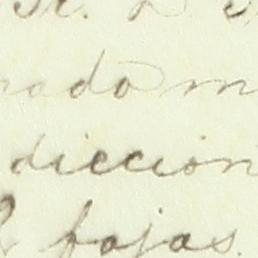 rado m
diccion
fojas.